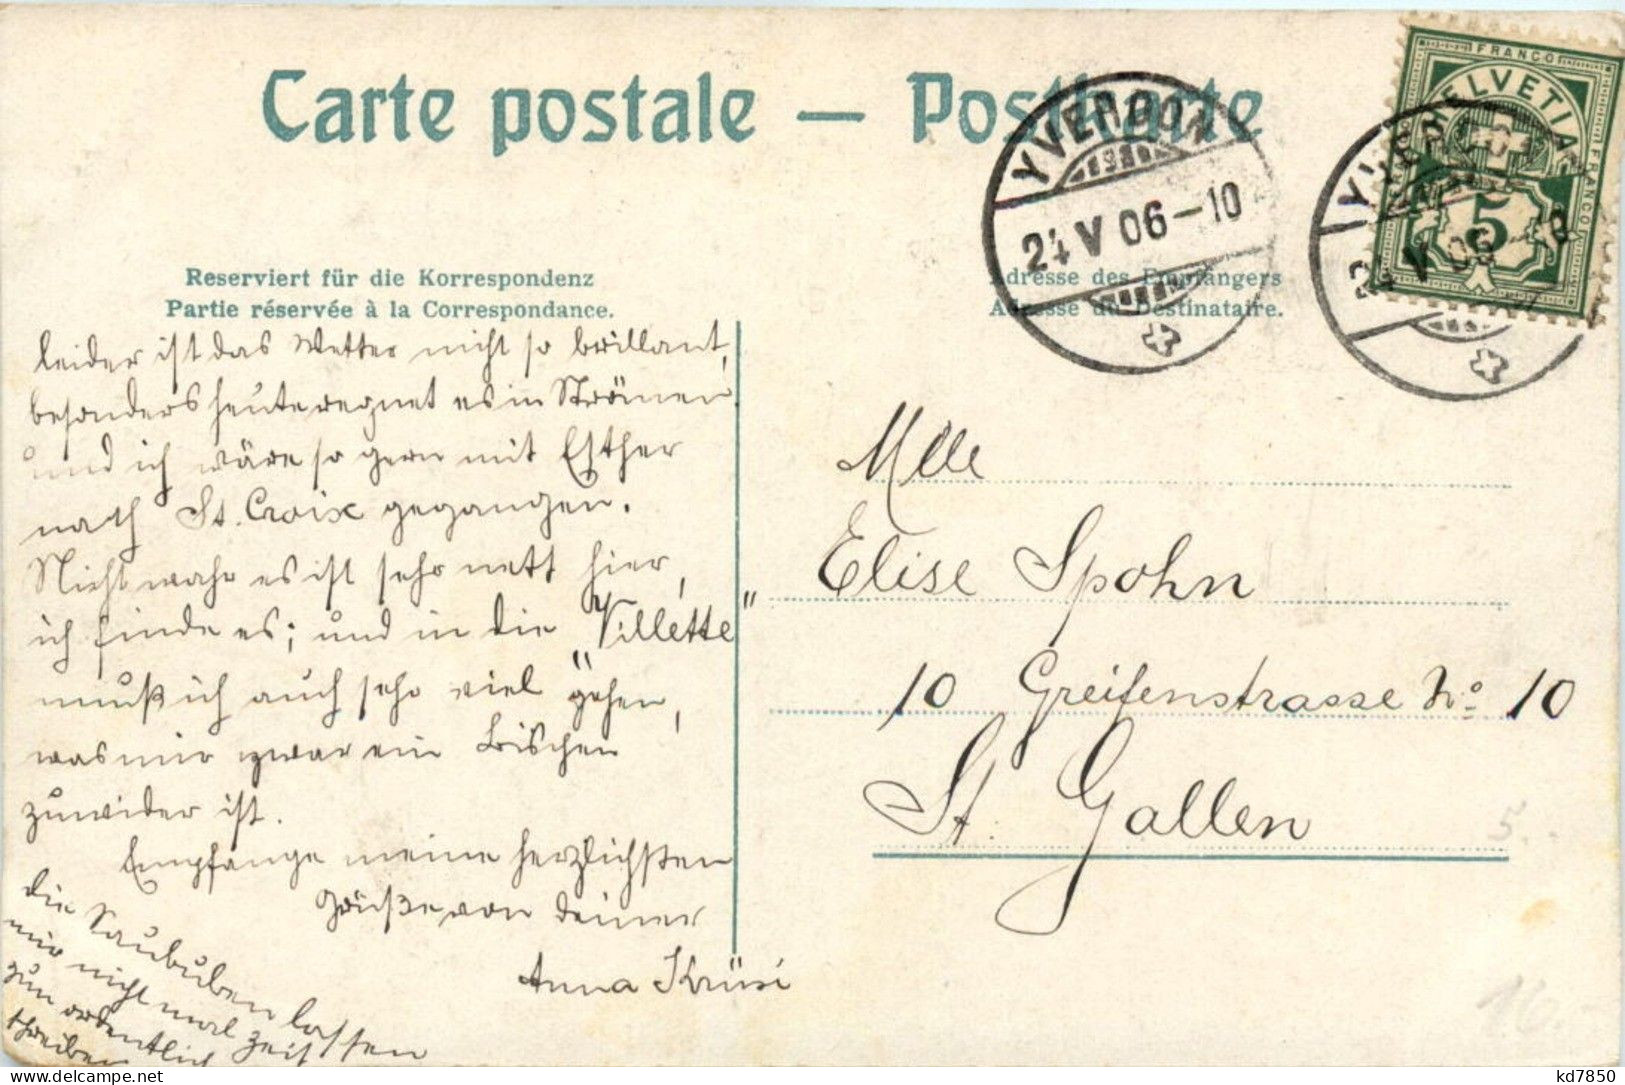 Carte postale — Postkarte
FRANCO
HELVETIA
FRANCO
5
YVERDON
24 V 06 – 10
YVERDON
24 V 06 – 10
Reserviert für die Korrespondenz
Partie réservée à la Correspondance.
Adresse des Empfängers
Adresse du Destinataire.
leider ist das Wetter nicht so brillant,
besonders heute regnet es in Strömen
und ich wäre so gern mit Esther
nach St. Croix gegangen.
Nicht wahr es ist sehr nett hier,
ich finde es; und in die „Villette"
muß ich auch sehr viel gehen,
was mir zwar ein bischen
zuwider ist.
Empfange meine herzlichsten
Grüße von deiner
Anna Krüsi
die Saububen lassen
mir nicht mal Zeit
zum ordentlich
schreiben
Mlle
Elise Spohn
10 Greifenstrasse No 10
St. Gallen
5.
16.-
delcampe.net
kd7850